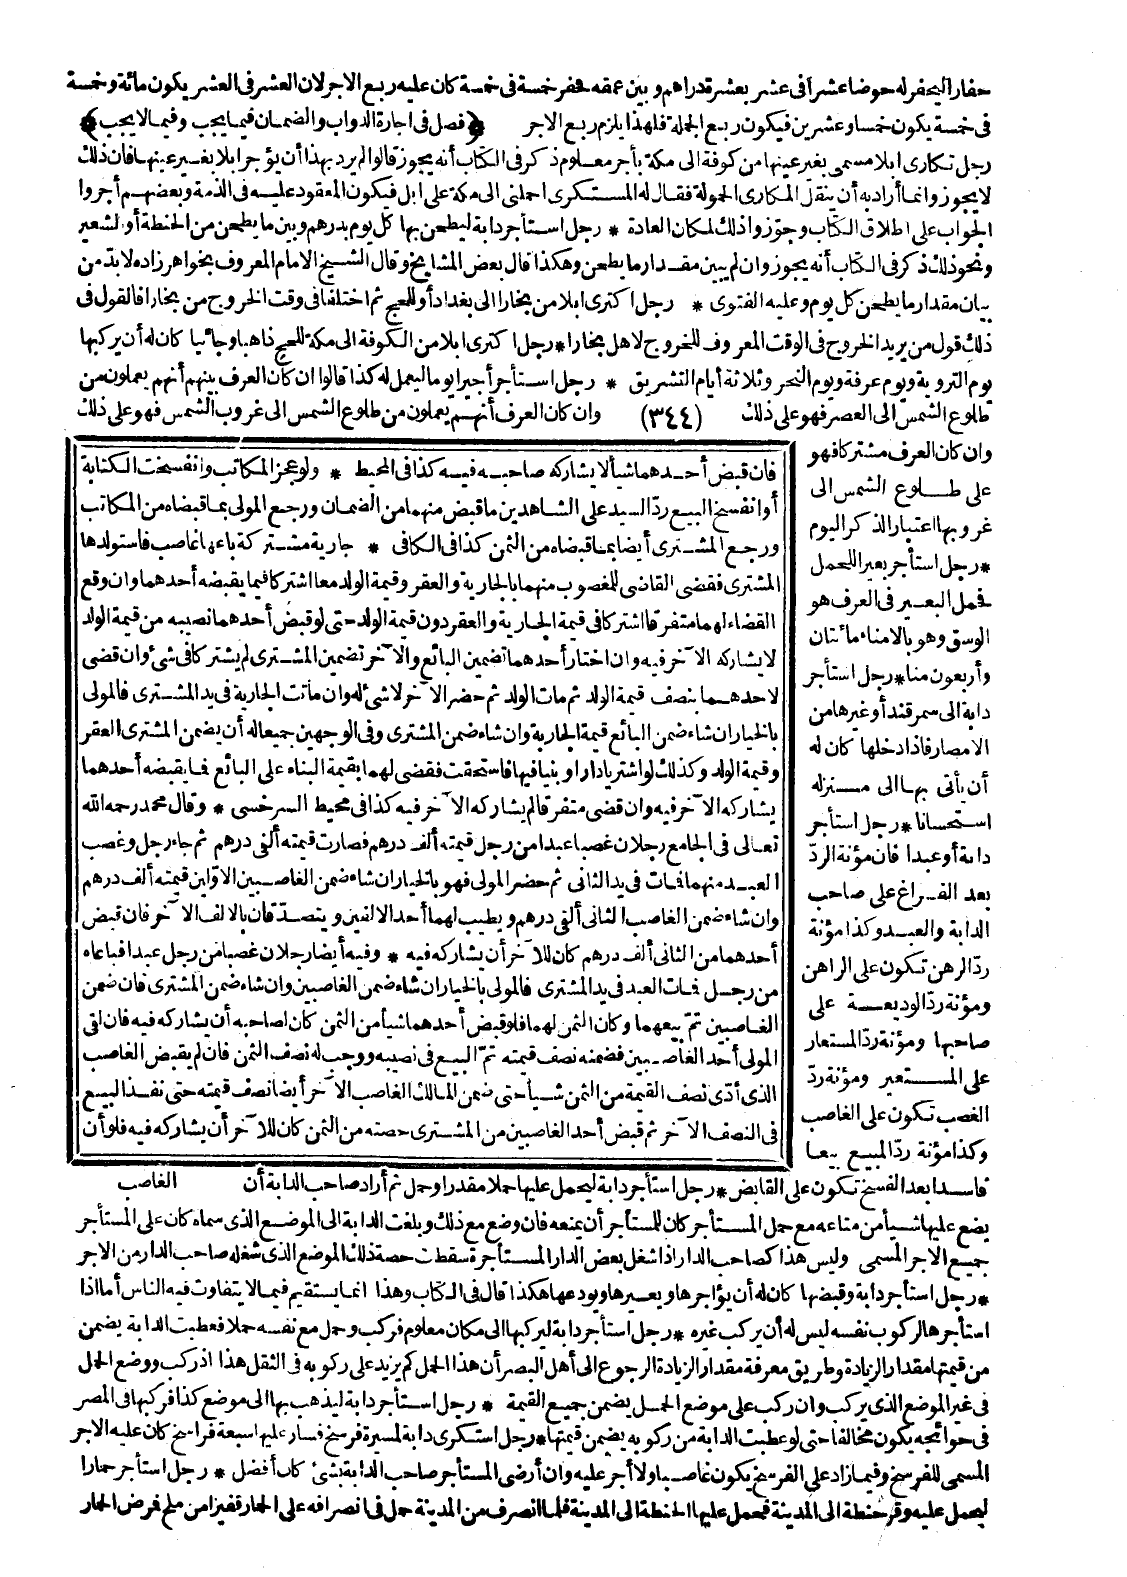 حفارا ليحفر له حوضا عشرا فى عشر بعشرة دراهم و بين عمقه فحفر خمسة فى خمسة كان عليه ربع الاجر لان العشر فى العشر يكون مائة وخمسة
فى خمسة يكون خمسا وعشرين فيكون ربع الجملة فلهذا يلزم ربع الاجر ﴿فصل فى اجارة الدواب والضمان فيما يجب وفيما لا يجب﴾
رجل تكارى ابلا مسمى بغير عينها من كوفة الى مكة بأجر معلوم ذكر فى الكتاب أنه يجوز قالوا لم يرد بهذا أن يؤجر ابلا بغير عينها فان ذلك
لا يجوز وانما أراد به أن ينقل المكارى الحمولة فقال له المستكرى احملنى الى مكة على ابل فيكون المعقود عليه فى الذمة وبعضهم أجروا
الجواب على اطلاق الكتاب وجوّزوا ذلك لمكان العادة * رجل استأجر دابة ليطحن بها كل يوم بدرهم وبين ما يطحن من الحنطة أو الشعير
ونحو ذلك ذكر فى الكتاب أنه يجوز وان لم يبين مقدار ما يطحن وهكذا قال بعض المشايخ وقال الشيخ الامام المعروف بخواهر زاده لا بدّ من
بيان مقدار ما يطحن كل يوم وعليه الفتوى * رجل اكترى ابلا من بخارا الى بغداد أو للحج ثم اختلفا فى وقت الخروج من بخارا فالقول فى
ذلك قول من يريد الخروج فى الوقت المعروف للخروج لاهل بخارا * رجل اكترى ابلا من الكوفة الى مكة للحج ذاهبا وجائيا كان له أن يركبها
يوم التروية ويوم عرفة ويوم النحر وثلاثة أيام التشريق * رجل استأجر أجيرا يوما ليعمل له كذا قالوا ان كان العرف بينهم أنهم يعملون من
طلوع الشمس الى العصر فهو على ذلك (٣٤٤) وان كان العرف أنهم يعملون من طلوع الشمس الى غروب الشمس فهو على ذلك
وان كان العرف مشتركا فهو
على طلوع الشمس الى
غروبها اعتبارا لذكر اليوم
* رجل استأجر بعيرا للحمل
فحمل البعير فى العرف هو
الوسق وهو بالامناء مائتان
وأربعون منا * رجل استأجر
دابة الى سمرقند أو غيرها من
الامصار فاذا دخلها كان له
أن يأتى بها الى منزله
استحسانا * رجل استأجر
دابة أو عبدا فان مؤنة الردّ
بعد الفراغ على صاحب
الدابة والعبد وكذا مؤنة
ردّ الرهن تكون على الراهن
ومؤنة ردّ الوديعة على
صاحبها ومؤنة ردّ المستعار
على المستعير ومؤنة ردّ
الغصب تكون على الغاصب
وكذا مؤنة ردّ المبيع بيعا
فاسدا بعد الفسخ تكون على القابض * رجل استأجر دابة ليحمل عليها حملا مقدرا وحمل ثم أراد صاحب الدابة أن
يضع عليها شيأ من متاعه مع حمل المستأجر كان للمستأجر أن يمنعه فان وضع مع ذلك وبلغت الدابة الى الموضع الذى سماه كان على المستأجر
جميع الاجر المسمى وليس هذا كصاحب الدار اذا شغل بعض الدار المستأجرة سقطت حصة ذلك الموضع الذى شغله صاحب الدار من الاجر
* رجل استأجر دابة وقبضها كان له أن يؤاجرها ويعيرها ويودعها هكذا قال فى الكتاب وهذا انما يستقيم فيما لا يتفاوت فيه الناس أما اذا
استأجرها لركوب نفسه ليس له أن يركب غيره * رجل استأجر دابة ليركبها الى مكان معلوم فركب وحمل مع نفسه حملا فعطبت الدابة يضمن
من قيمتها مقدار الزيادة وطريق معرفة مقدار الزيادة الرجوع الى أهل البصر أن هذا الحمل كم يزيد على ركوبه فى الثقل هذا اذ ركب ووضع الحمل
فى غير الموضع الذى يركب وان ركب على موضع الحمل يضمن جميع القيمة * رجل استأجر دابة ليذهب بها الى موضع كذا فركبها فى المصر
فى حوائجه يكون مخالفا حتى لو عطبت الدابة من ركوبه يضمن قيمتها * رجل استكرى دابة لمسيرة فرسخ فسار عليها سبعة فراسخ كان عليه الاجر
المسمى للفرسخ وفيما زاد على الفرسخ يكون غاصبا ولا أجر عليه وان أرضى المستأجر صاحب الدابة بشئ كان أفضل * رجل استأجر حمارا
ليحمل عليه وقر حنطة الى المدينة فحمل عليها الحنطة الى المدينة فلما انصرف من المدينة حمل فى انصرافه على الحمار قفيزا من ملح فمرض الحمار
فان قبض أحدهما شيأ لا يشاركه صاحبه فيه كذا فى المحيط * ولو عجز المكاتب وانفسخت الكتابة
أو انفسخ البيع ردّ السيد على الشاهدين ما قبض منهما من الضمان ورجع المولى بما قبضاه من المكاتب
ورجع المشترى أيضا بما قبضاه من الثمن كذا فى الكافى * جارية مشتركة باعها غاصب فاستولدها
المشترى فقضى القاضى للمغصوب منهما بالجارية والعقر وقيمة الولد معا اشتركا فيما يقبضه أحدهما وان وقع
القضاء لهما متفرقا اشتركا فى قيمة الجارية والعقر دون قيمة الولد حتى لو قبض أحدهما نصيبه من قيمة الولد
لا يشاركه الآخر فيه وان اختار أحدهما تضمين البائع والآخر تضمين المشترى لم يشتركا فى شئ وان قضى
لاحدهما بنصف قيمة الولد ثم مات الولد ثم حضر الآخر لا شئ له وان ماتت الجارية فى يد المشترى فالمولى
بالخيار ان شاء ضمن البائع قيمة الجارية وان شاء ضمن المشترى وفى الوجهين جميعا له أن يضمن المشترى العقر
وقيمة الولد وكذلك لو اشتريا دارا وبنيا فيها فاستحقت فقضى لهما بقيمة البناء على البائع فما يقبضه أحدهما
يشاركه الآخر فيه وان قضى متفرقا لم يشاركه الآخر فيه كذا فى محيط السرخسى * وقال محمد رحمه الله
تعالى فى الجامع رجلان غصبا عبدا من رجل قيمته ألف درهم فصارت قيمته ألفى درهم ثم جاء رجل وغصب
العبد منهما فمات فى يد الثانى ثم حضر المولى فهو بالخيار ان شاء ضمن الغاصبين الاوّلين قيمته ألف درهم
وان شاء ضمن الغاصب الثانى ألفى درهم ويطيب لهما أحد الالفين ويتصدّقان بالالف الآخر فان قبض
أحدهما من الثانى ألف درهم كان للآخر أن يشاركه فيه * وفيه أيضا رجلان غصبا من رجل عبدا فباعاه
من رجل فمات العبد فى يد المشترى فالمولى بالخيار ان شاء ضمن الغاصبين وان شاء ضمن المشترى فان ضمن
الغاصبين تمّ بيعهما وكان الثمن لهما فلو قبض أحدهما شيأ من الثمن كان لصاحبه أن يشاركه فيه فان لقى
المولى أحد الغاصبين فضمنه نصف قيمته تمّ البيع فى نصيبه ووجب له نصف الثمن فان لم يقبض الغاصب
الذى أدّى نصف القيمة من الثمن شيأ حتى ضمن المالك الغاصب الآخر أيضا نصف قيمته حتى نفذ البيع
فى النصف الآخر ثم قبض أحد الغاصبين من المشترى حصته من الثمن كان للآخر أن يشاركه فيه فلو أن
الغاصب